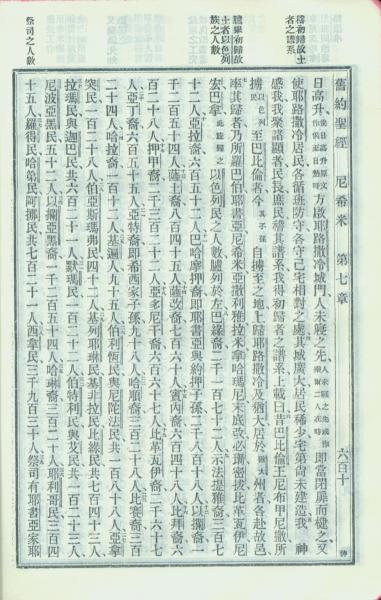 稽初歸故土
者之譜系
臚舉初歸故
土者以色列
族之人數
祭司之人數
舊約聖經 尼希米 第七章 六百十
日高升日高升原文作俟日熱時方啟耶路撒冷城門人未寢之先即當閉扉而楗之又
使耶路撒冷居民各循班防守各守己宅相對之處其城廣大居民稀少宅第尚未建造我 神
感我我聚諸顯者民長庶民稽其譜系我得初歸者之譜系上載曰昔巴比倫王尼布甲尼撒所
擄以色列民至巴比倫者今其子孫自擄至之地上歸耶路撒冷及猶大居於猶大州者各赴故邑
率其歸者乃所羅巴伯耶書亞尼希米亞撒利雅拉米拿哈瑪尼末底改必珊拔比革瓦伊尼
宏巴拿以色列民之人數臚列於左巴綠裔二千一百七十二人示法提雅裔三百七
十二人亞拉裔六百五十二人巴哈摩押裔即耶書亞與約押子孫二千八百十八人以攔裔一
千二百五十四人薩土裔八百四十五人薩改裔七百六十人賓內裔六百四十八人比拜裔六
百二十八人押甲裔二千三百二十二人亞多尼干裔六百六十七人比革瓦伊裔二千六十七
人亞丁裔六百五十五人亞特裔即希西家子孫九十八人哈順裔三百二十八人比賽裔三百
二十四人哈拉裔一百十二人基遍人九十五人伯利恆民與尼陀法民共一百八十八人亞拿
突民一百二十八人伯亞斯瑪弗民四十二人基列耶琳民基非拉民比綠民共七百四十三人
拉瑪民與迦巴民共六百二十一人默瑪民一百二十二人伯特利民與艾民共一百二十三人
尼波亞黑民五十二人以攔亞黑裔一千二百五十四人哈琳裔三百二十人耶利哥民三百四
十五人羅得民哈第民阿挪民共七百二十一人西拿民三千九百三十人祭司有耶書亞家耶